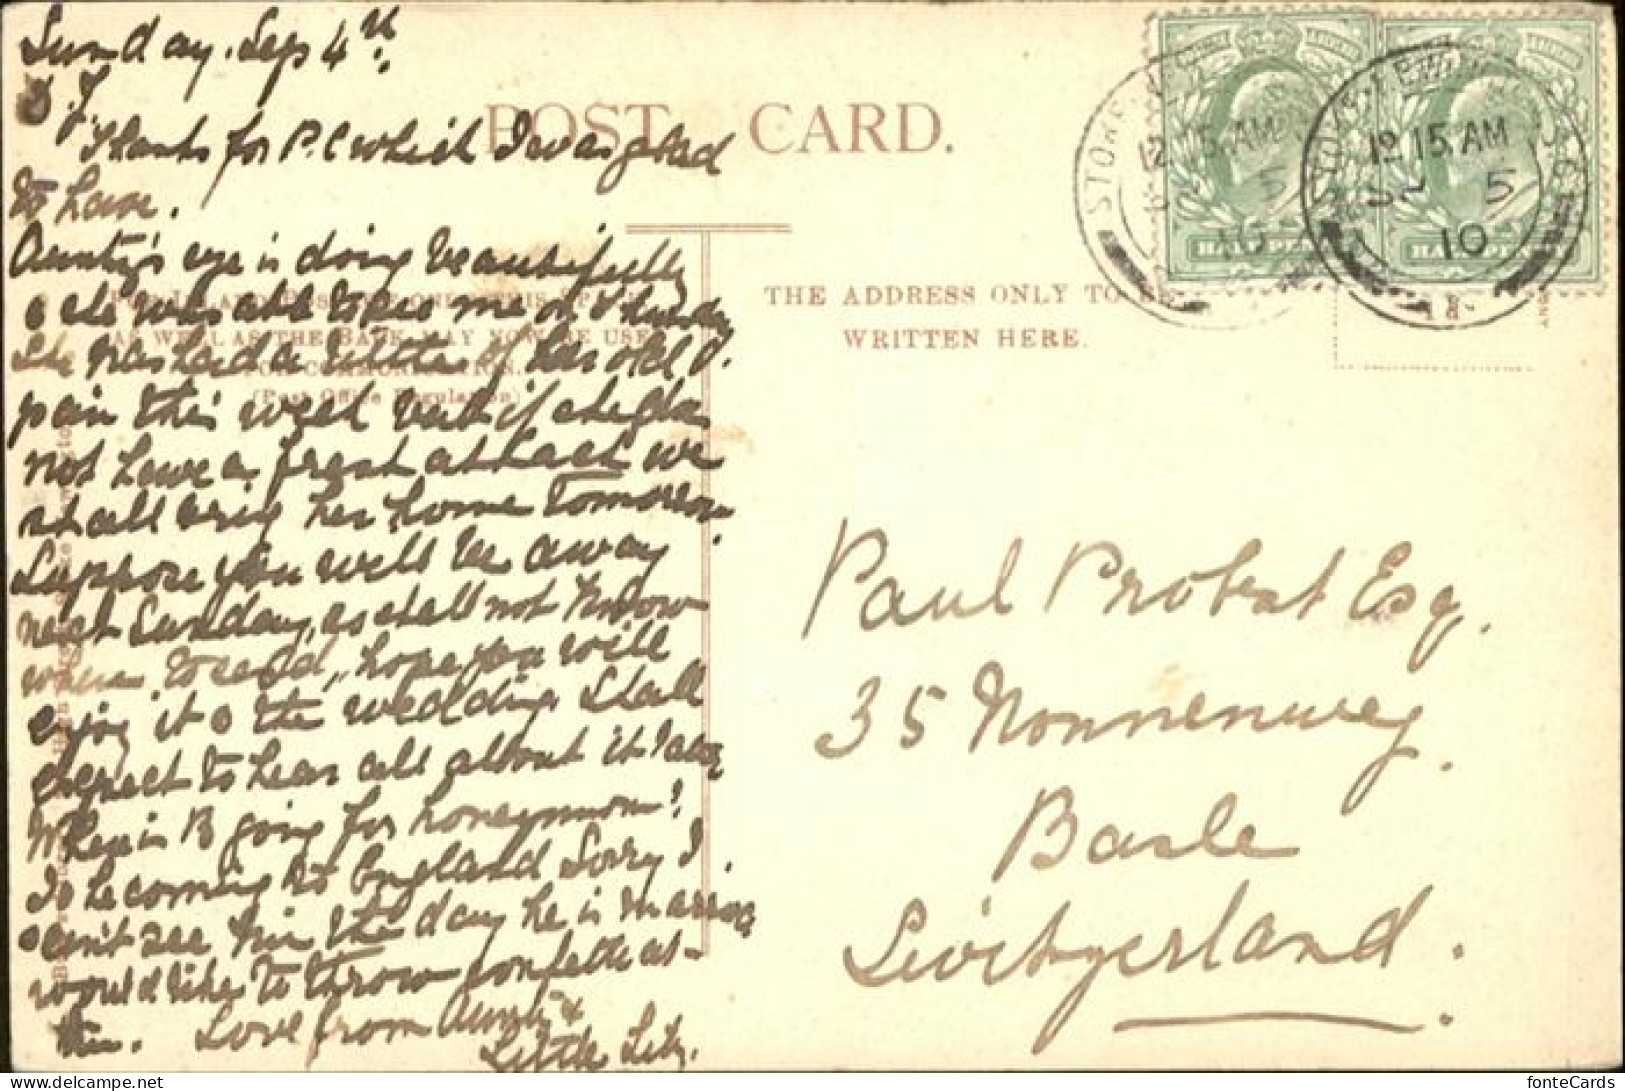 Sunday. Sep 4th.
D. J.
Thanks for P.C which I was glad
to have.
Aunty's eye is doing beautifully
& she was able to see me on Thursday
She has had a little of her old
pain this week but if she does
not have a fresh attack we
shall bring her home tomorrow.
Suppose you will be away
next Sunday, so shall not know
where to send, hope you will
enjoy it & the wedding. Shall
expect to hear all about it
Where is B going for honeymoon?
Is he coming to England Sorry I
can't see him the day he is married
would like to throw confetti at
him. Love from Aunty &
Little
POST CARD.
FOR INLAND POSTAGE ONLY THIS SPACE,
AS WELL AS THE BACK, MAY NOW BE USED
FOR COMMUNICATION.
(Post Office Regulation)
THE ADDRESS ONLY TO BE
WRITTEN HERE.
12 15 AM
5
10
12 15 AM
SP 5
10
HALFPENNY
HALFPENNY
Paul Probst Esq.
35 Nonnenweg.
Basle
Switzerland.
fonteCards